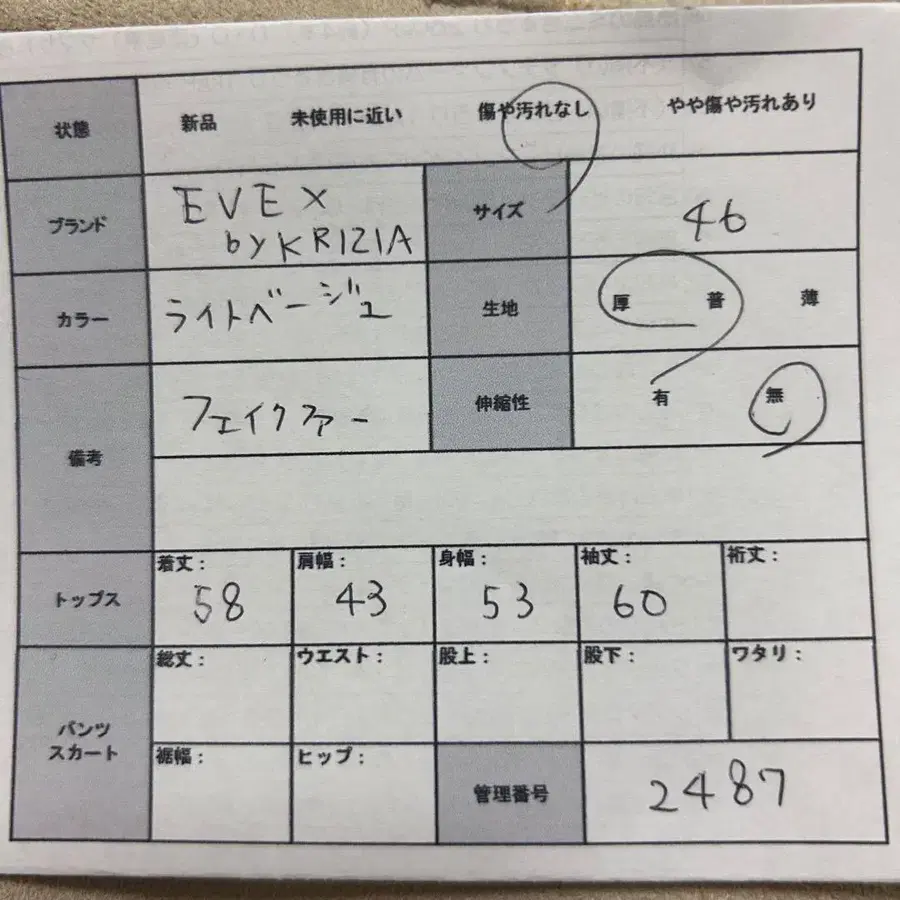 状態 新品 未使用に近い 傷や汚れなし やや傷や汚れあり
ブランド EVEX by KRIZIA サイズ 46
カラー ライトベージュ 生地 厚 普 薄
備考 フェイクファー 伸縮性 有 無
トップス 着丈: 58 肩幅: 43 身幅: 53 袖丈: 60 裄丈:
パンツ スカート 総丈: ウエスト: 股上: 股下: ワタリ:
裾幅: ヒップ: 管理番号 2487